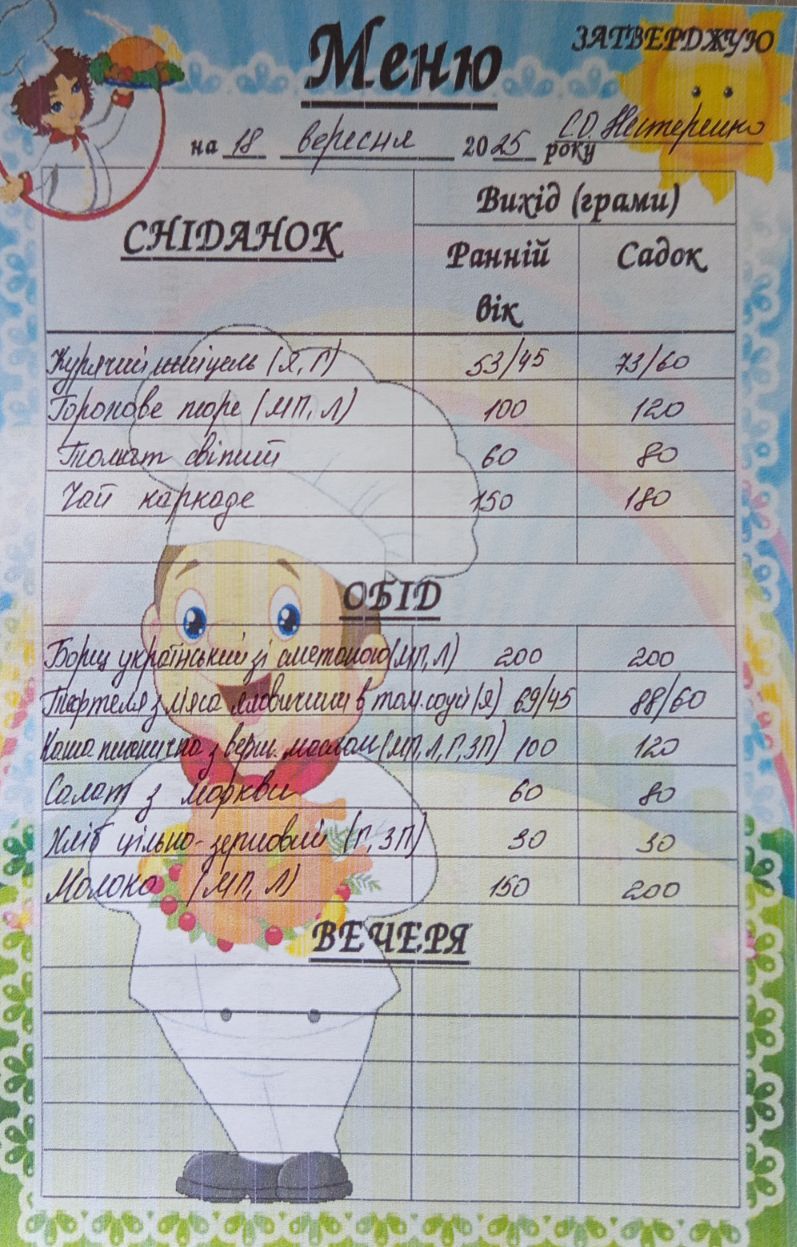 Меню
ЗАТВЕРДЖУЮ
на 18 вересня 2025 року С.О. Нестеренко
СНІДАНОК
Вихід (грами)
Ранній вік
Садок
Курячий шніцель (Я, Г) 53/45 73/60
Горохове пюре (МП, Л) 100 120
Томат свіжий 60 80
Чай каркаде 150 180
ОБІД
Борщ український зі сметаною (МП, Л) 200 200
Тюфтеля з м'яса яловичини в том. соусі (Я) 69/45 88/60
Каша пшенична з верш. маслом (МП, Л, Г, ЗП) 100 120
Салат з моркви 60 80
Хліб цільно-зерновий (Г, ЗП) 30 30
Молоко (МП, Л) 150 200
ВЕЧЕРЯ